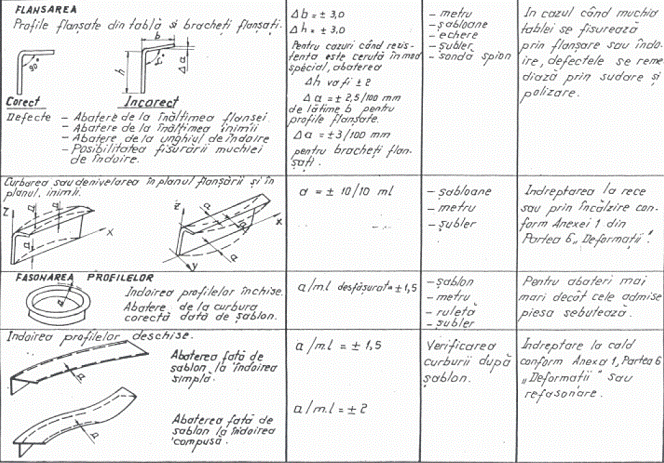 FLANSAREA
Profile flanșate din tablă și bracheți flanșați.
b
h
Δa
90°
Corect
Incorect
Defecte - Abatere de la înălțimea flanșei.
- Abatere de la înălțimea inimii
- Abatere de la unghiul de îndoire
- Posibilitatea fisurării muchiei
de îndoire.
Δb = ± 3,0
Δh = ± 3,0
Pentru cazuri când rezis-
tența este cerută în mod
special, abaterea
Δh va fi ± 2
Δa = ± 2,5/100 mm
de lățime b pentru
profile flanșate.
Δa = ±3/100 mm
pentru bracheți flan-
șați.
- metru
- șabloane
- echere
- șubler
- sondă spion
In cazul când muchia
tablei se fisurează
prin flanșare sau îndo-
ire, defectele se reme
diază prin sudare și
polizare.
Curbarea sau denivelarea în planul flanșării și în
planul inimii.
z
a
a
a
x
z
a
x
y
a
a = ± 10/10 ml
- șabloane
- metru
- șubler
Indreptarea la rece
sau prin încălzire con-
form Anexei 1 din
Partea 6 „Deformații”.
FASONAREA PROFILELOR
Indoirea profilelor închise.
Abatere de la curbura
corectă dată de șablon.
a
a/ml desfășurat = ±1,5
- șablon
- metru
- ruletă
- șubler
Pentru abateri mai
mari decât cele admise
piesa sebutează.
Indoirea profilelor deschise.
a
Abaterea fată de
sablon la îndoirea
simplă.
a
Abaterea fată de
sablon la îndoirea
compusă.
a/m.l = ± 1,5
a/m.l = ± 2
Verificarea
curburii după
șablon.
Indreptare la cald
conform Anexa 1, Partea 6
„Deformații” sau
refasonare.